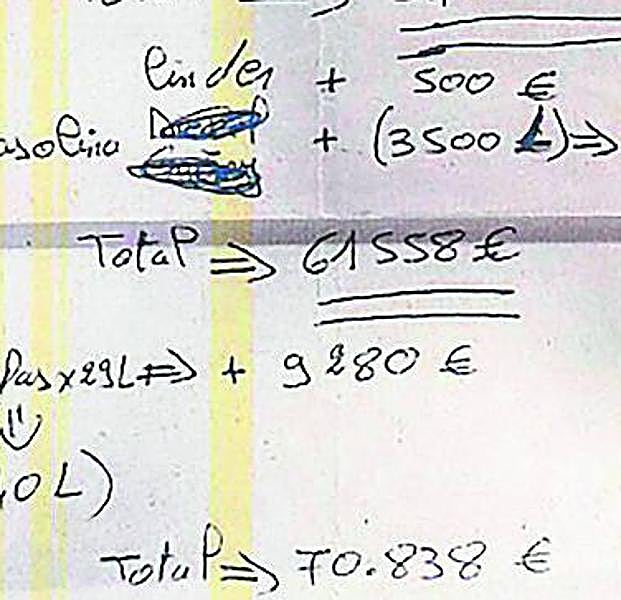 linder + 500 €
asolina + (3500 L) ⇒
Total ⇒ 61558 €
las x 29L ⇒ + 9280 €
⇓
40L)
Total ⇒ 70.838 €